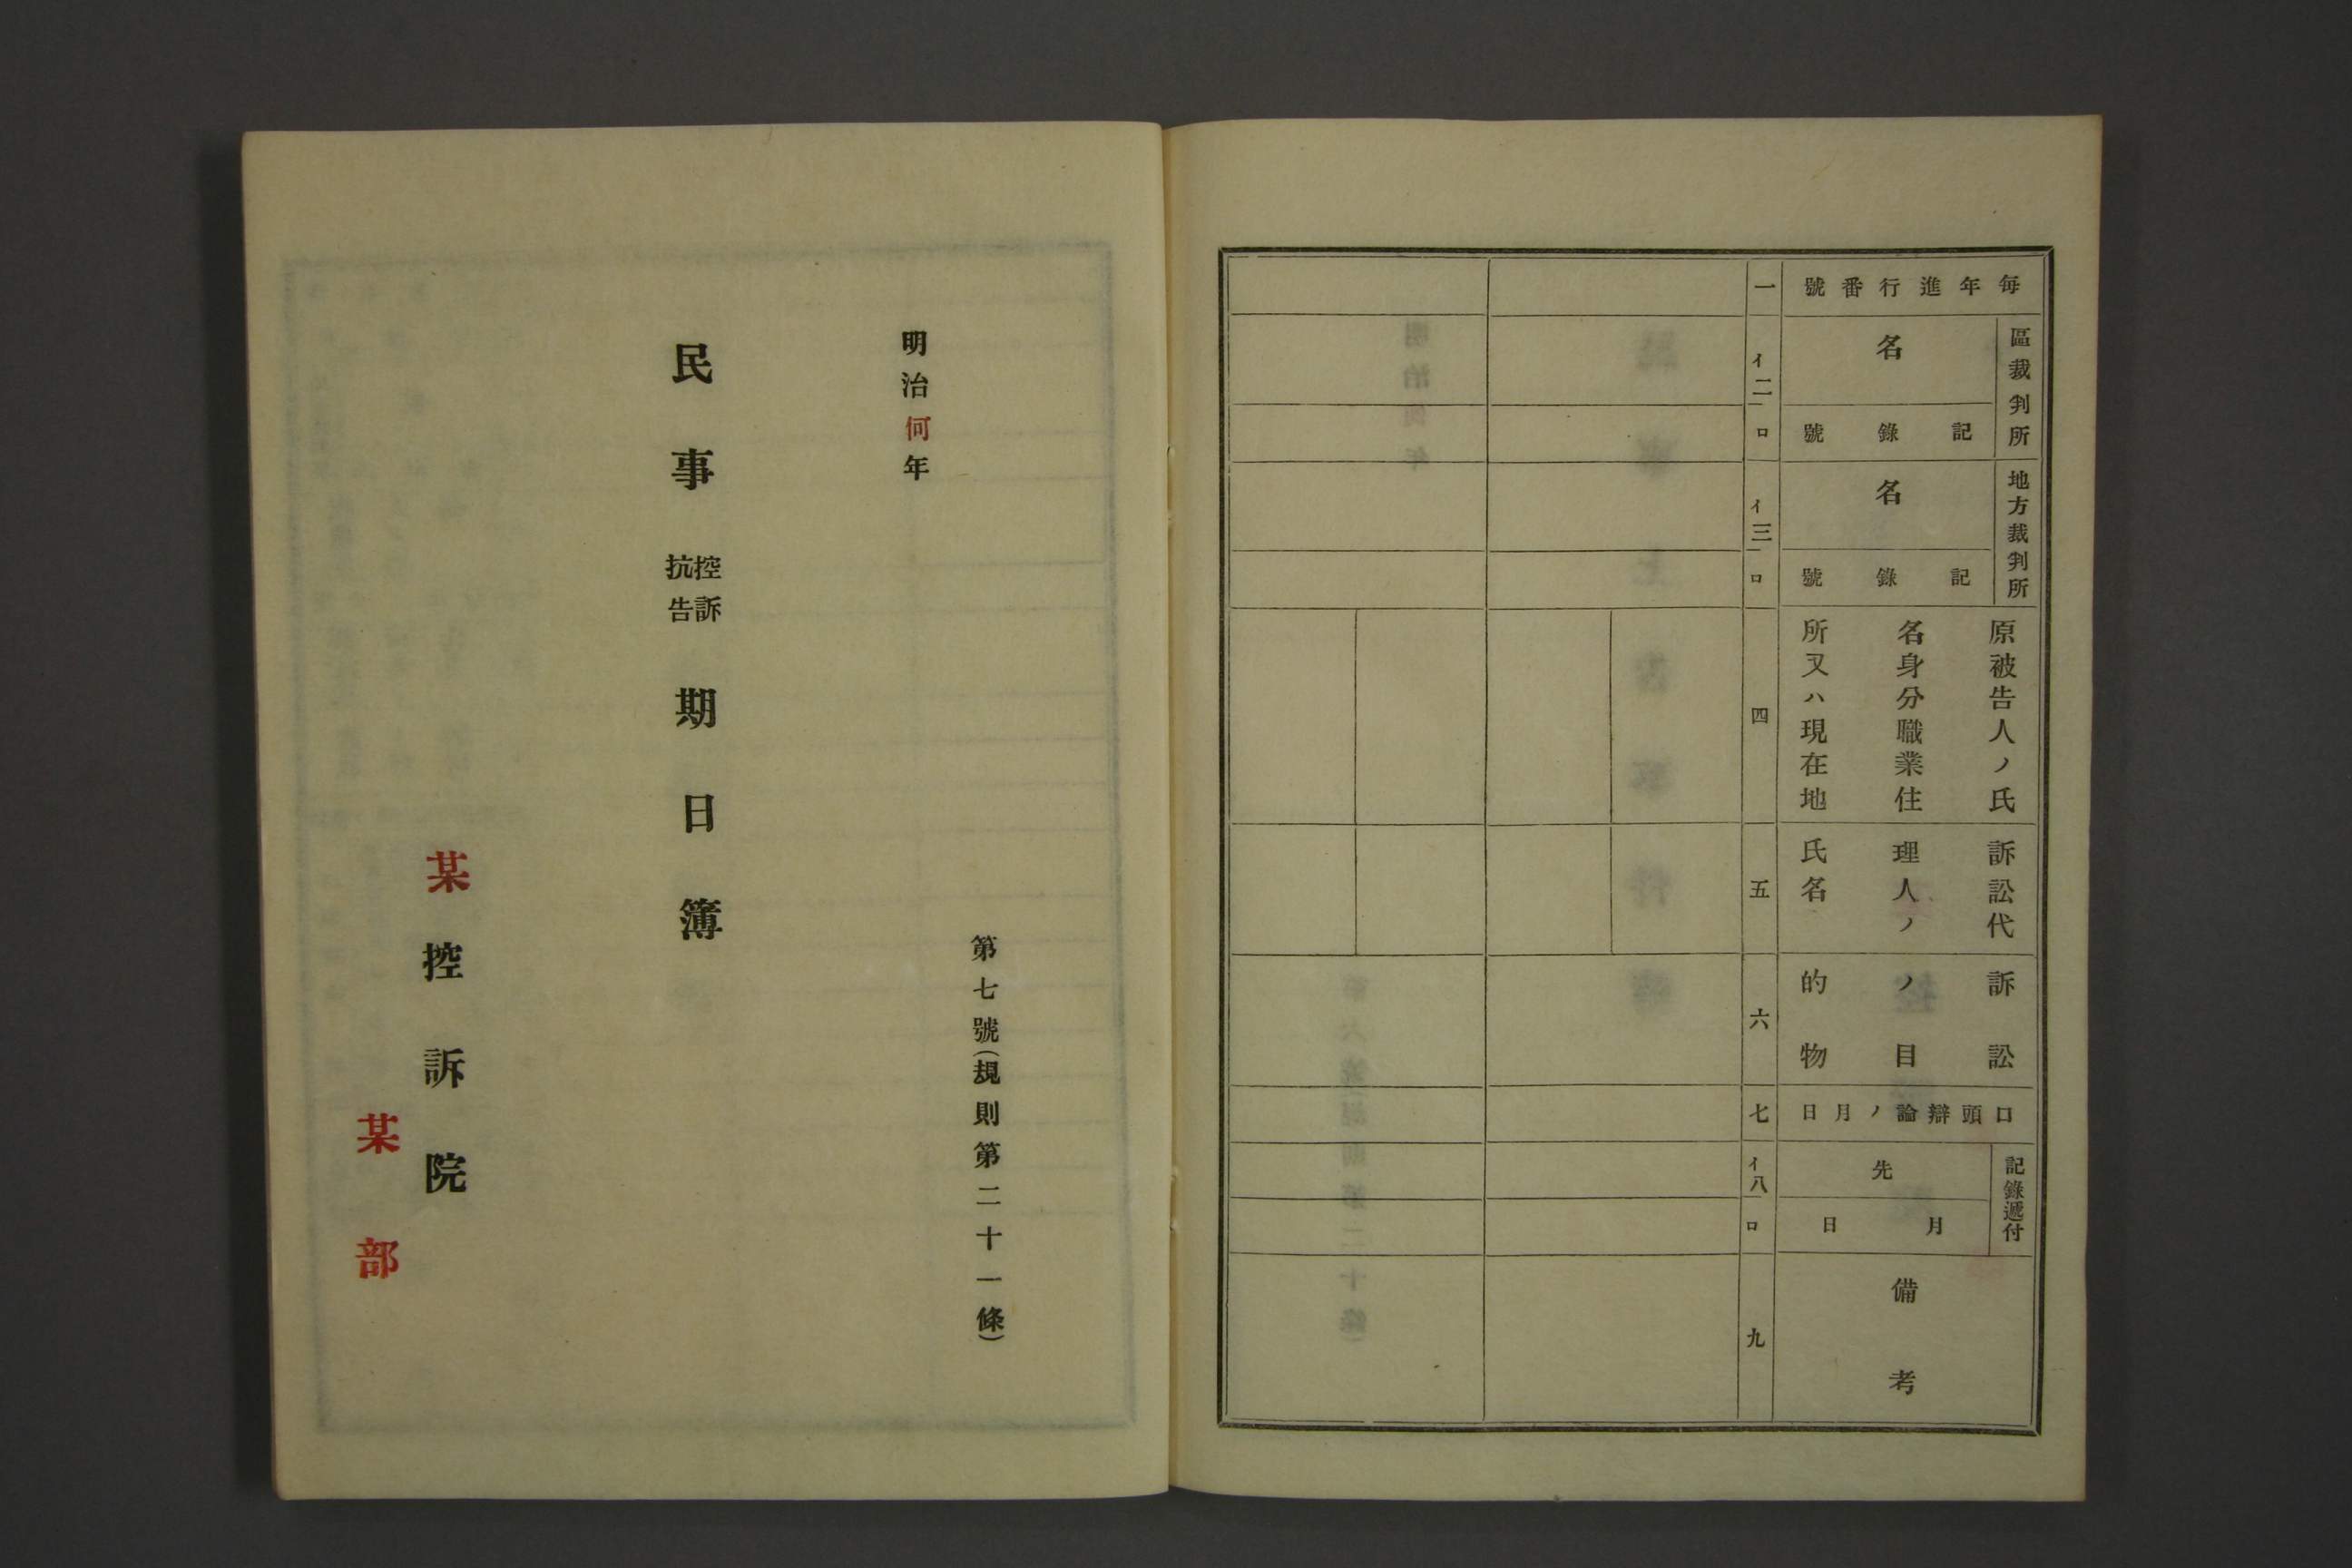 毎年進行番號
一
區裁判所
名
イ
二
記錄號
ロ
地方裁判所
名
イ
三
記錄號
ロ
原被告人ノ氏
名身分職業住
所又ハ現在地
四
訴訟代
理人ノ
氏名
五
訴訟
ノ目
的物
六
口頭辯論ノ月日
七
記錄遞付
先
イ
八
月日
ロ
備考
九
第七號(規則第二十一條)
明治何年
民事控訴抗告期日簿
某控訴院
某部